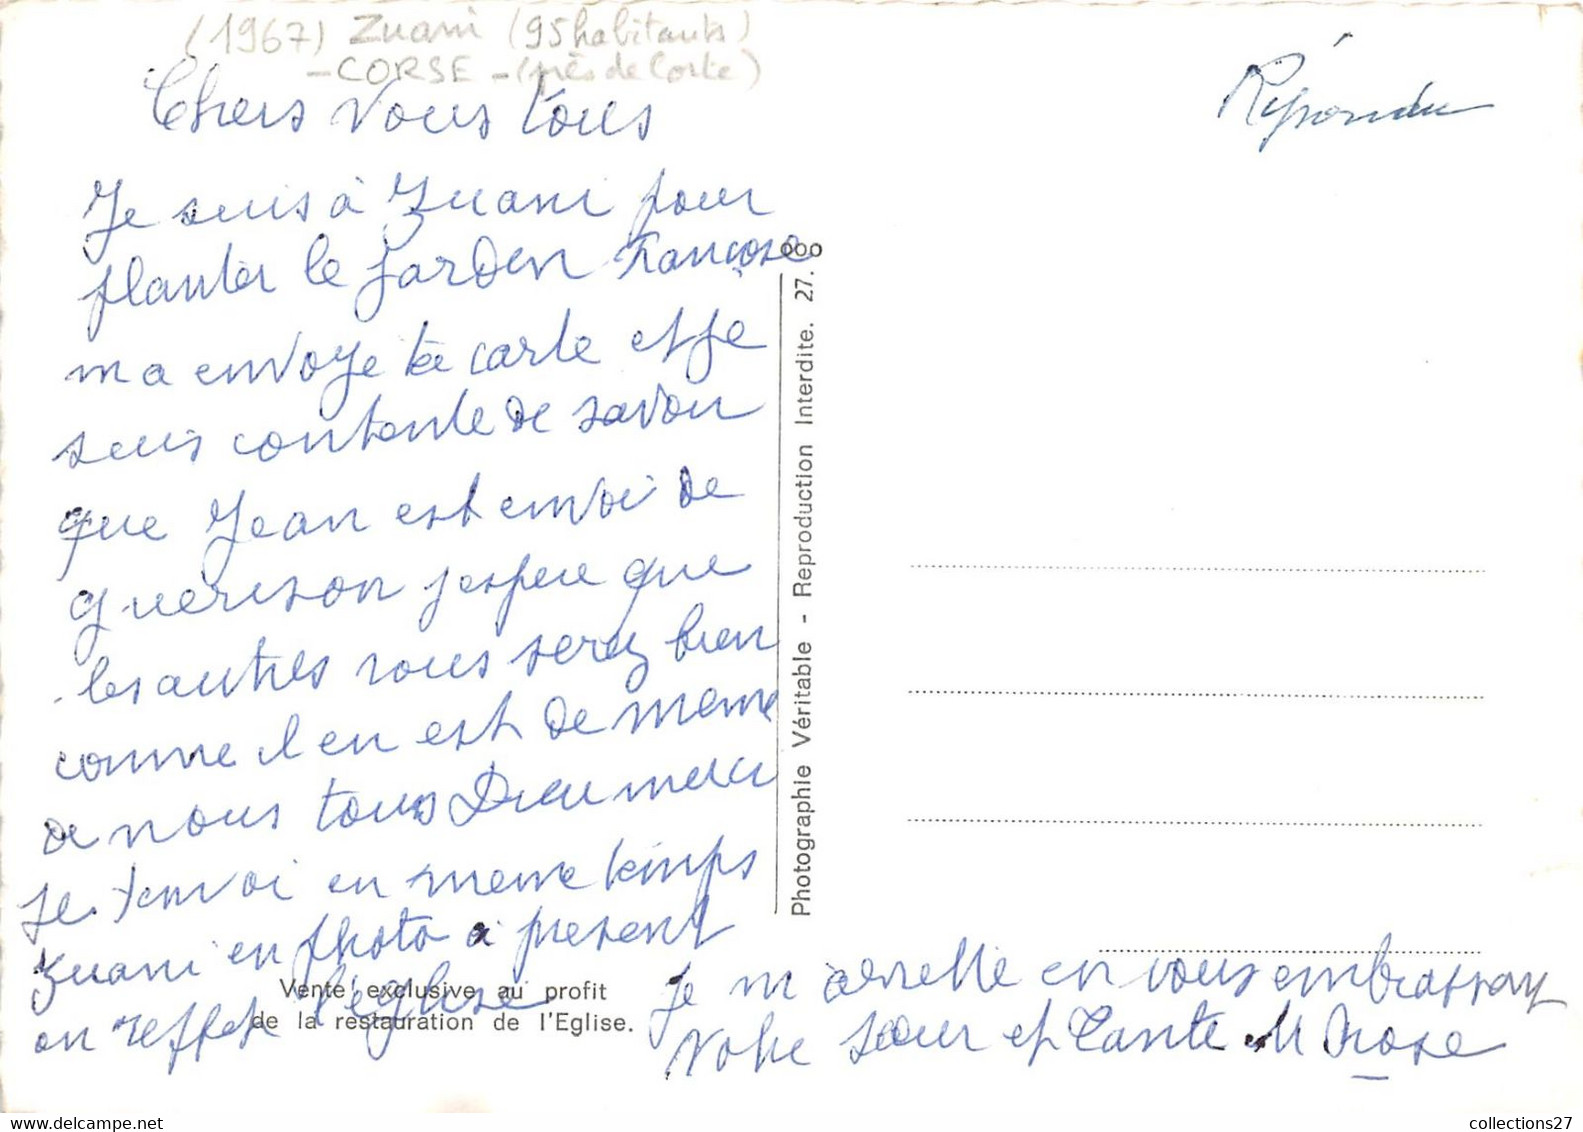 (1967) Zuani (95 habitants)
- CORSE - (près de Corte)
Répondu
Chers Vous Tous
Je suis à Zuani pour
planter le Jardin Françoise
m a envoye ta carte et Je
suis contente de savoir
que Jean est en voi de
guerison j espere que
les autres vous serez bien
comme il en est de meme
de nous tous Dieu merci
Je t envoi en meme temps
Zuani en photo a present
on reffet l'église
Je m arrette en vous embrassant
Votre sœur et Tante M Rose
Vente exclusive au profit
de la restauration de l'Eglise.
Photographie Véritable - Reproduction Interdite. 27. 000
collections27